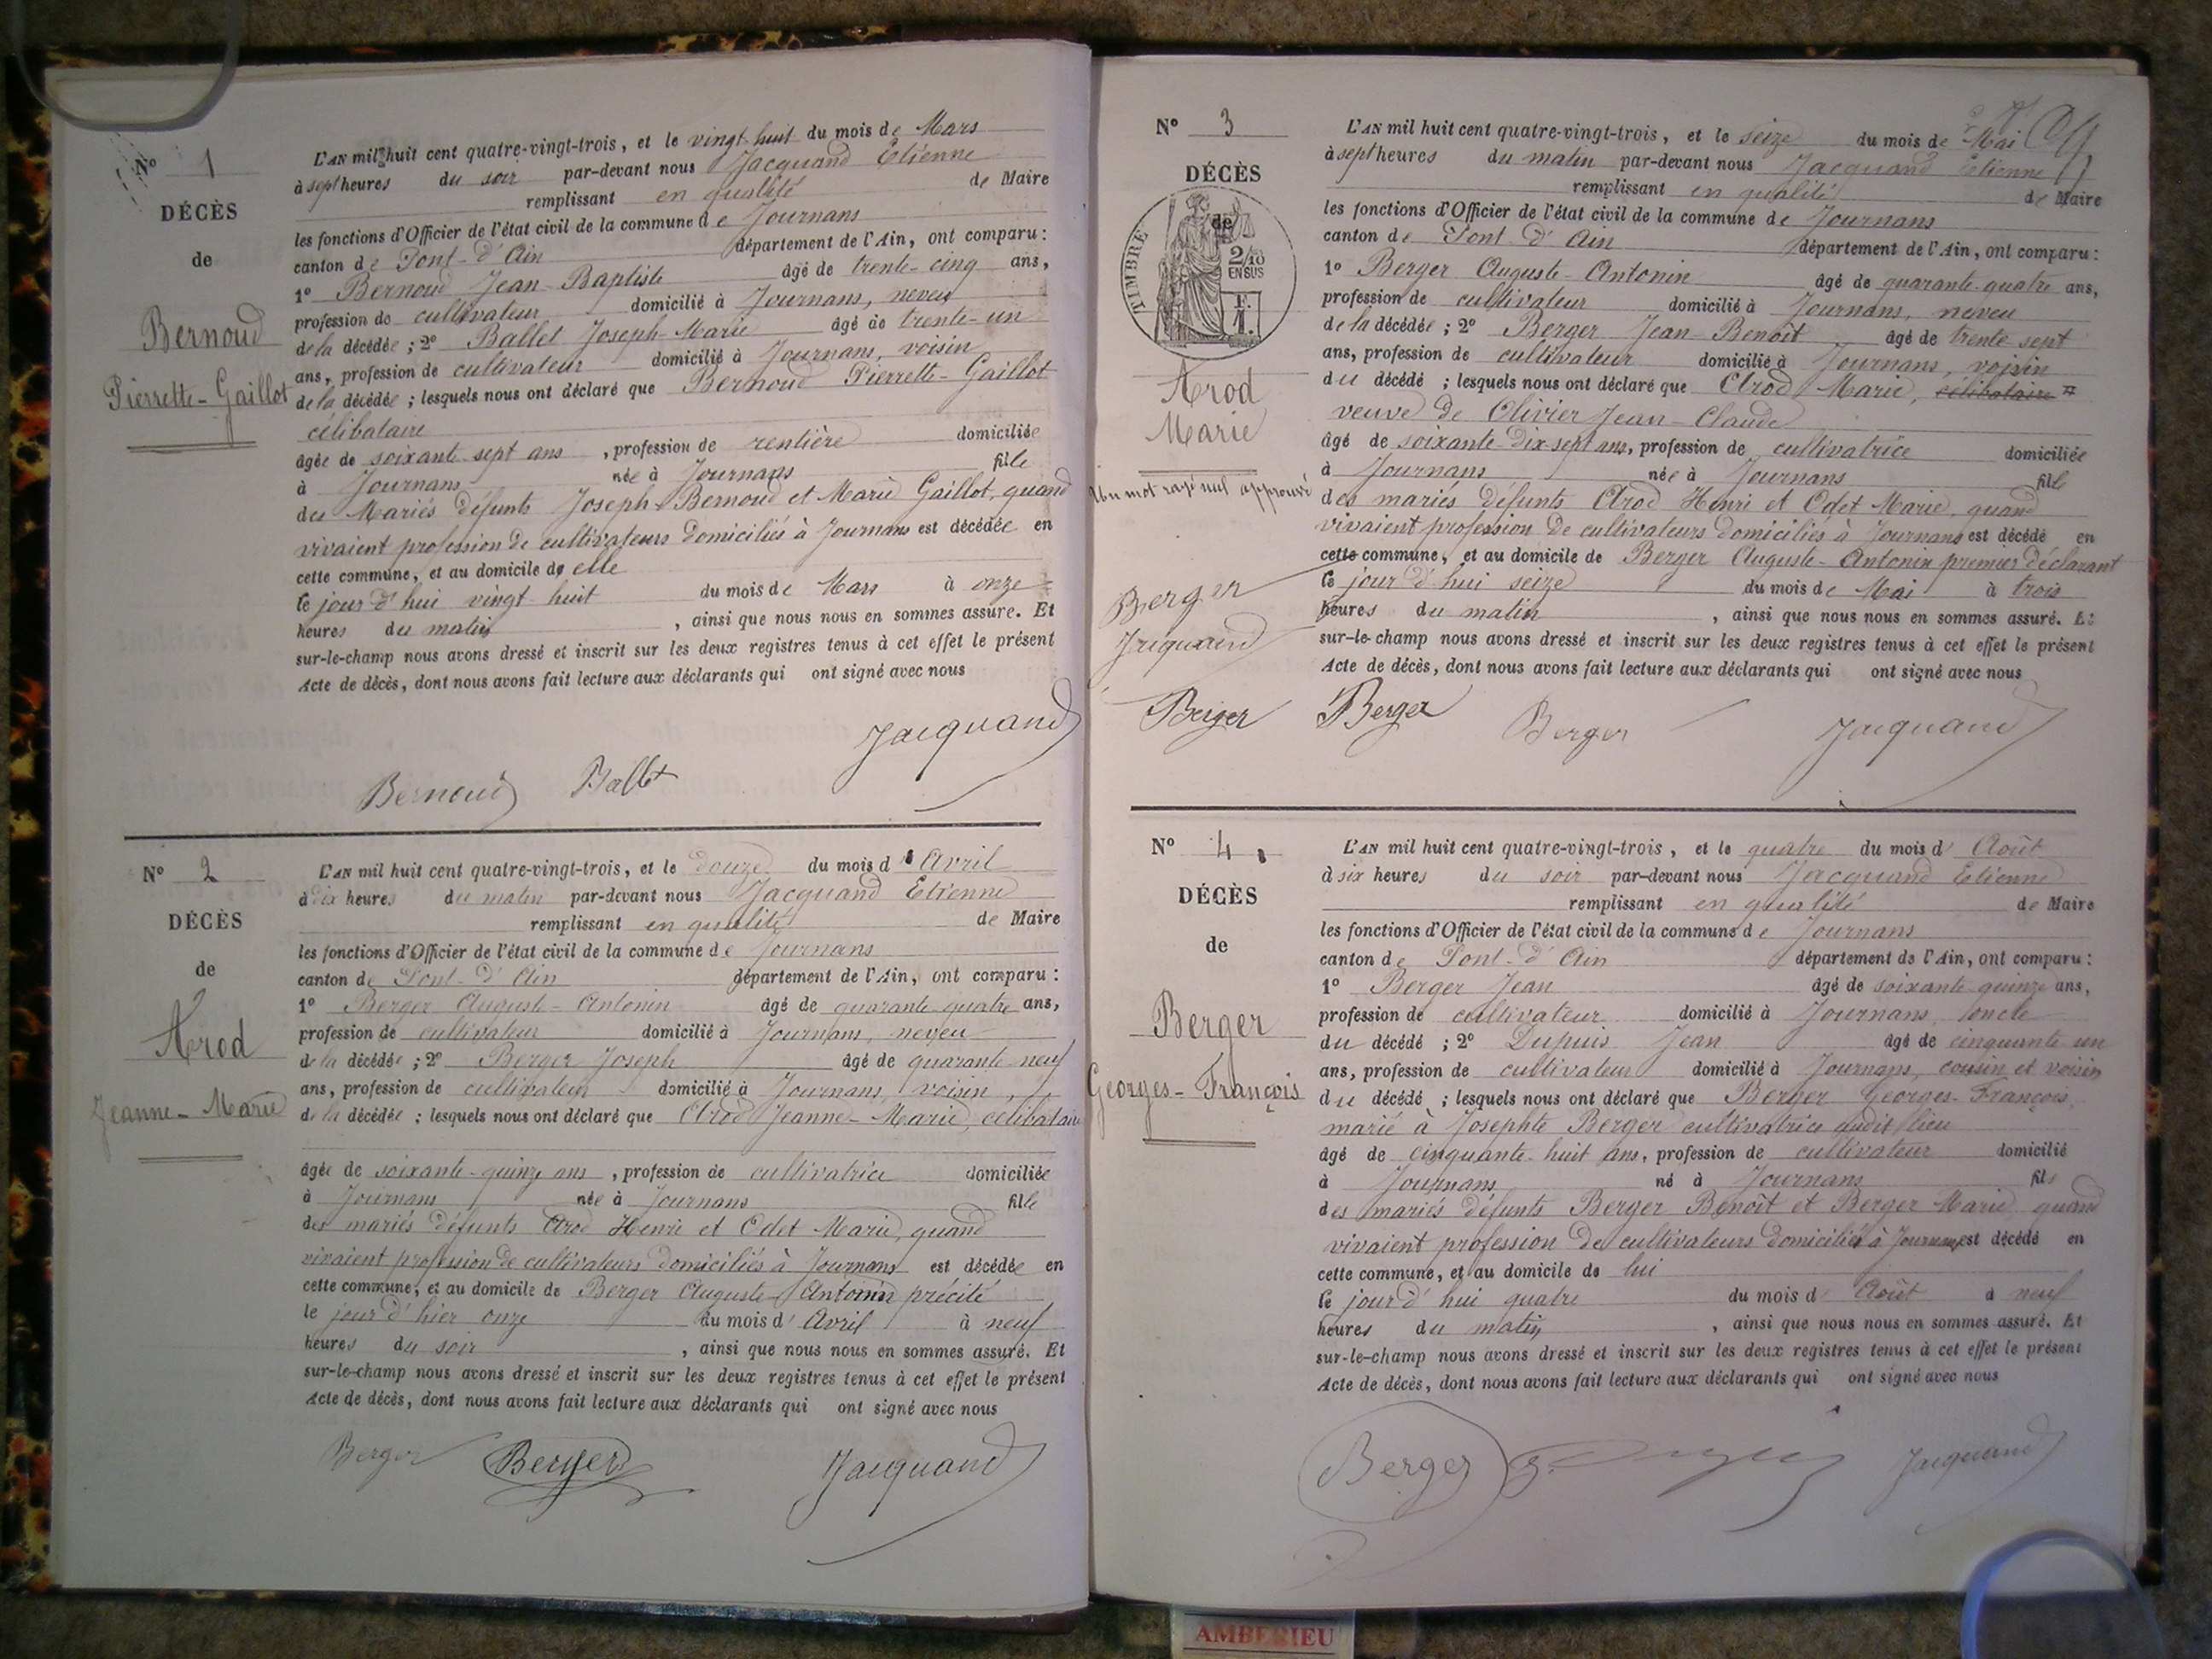 Nº 1
DÉCÈS
de
Bernoud
Pierrette-Gaillot
L'AN mil huit cent quatre-vingt-trois, et le vingt-huit du mois de Mars
à sept heures du soir par-devant nous Jacquand Etienne
remplissant en qualité de Maire
les fonctions d'Officier de l'état civil de la commune de Journans
canton de Pont-d'Ain département de l'Ain, ont comparu :
1º Bernoud Jean-Baptiste âgé de trente-cinq ans,
profession de cultivateur domicilié à Journans, neveu
de la décédée ; 2º Ballet Joseph-Marie âgé de trente-un
ans, profession de cultivateur domicilié à Journans, voisin
de la décédée ; lesquels nous ont déclaré que Bernoud Pierrette-Gaillot
célibataire
âgée de soixante-sept ans, profession de rentière domiciliée
à Journans née à Journans fille
des Mariés défunts Joseph Bernoud et Marie Gaillot, quand
vivaient profession de cultivateurs domiciliés à Journans est décédée en
cette commune, et au domicile de elle
le jour d'hui vingt-huit du mois de Mars à onze
heures du matin, ainsi que nous nous en sommes assuré. Et
sur-le-champ nous avons dressé et inscrit sur les deux registres tenus à cet effet le présent
Acte de décès, dont nous avons fait lecture aux déclarants qui ont signé avec nous
Jacquand
Bernoud Ballet
Nº 2
DÉCÈS
de
Arod
Jeanne-Marie
L'AN mil huit cent quatre-vingt-trois, et le douze du mois d'Avril
à dix heures du matin par-devant nous Jacquand Etienne
remplissant en qualité de Maire
les fonctions d'Officier de l'état civil de la commune de Journans
canton de Pont-d'Ain département de l'Ain, ont comparu :
1º Berger Auguste-Antonin âgé de quarante-quatre ans,
profession de cultivateur domicilié à Journans, neveu
de la décédée ; 2º Berger Joseph âgé de quarante-neuf
ans, profession de cultivateur domicilié à Journans, voisin,
de la décédée ; lesquels nous ont déclaré que Arod Jeanne-Marie, célibataire
âgée de soixante-quinze ans, profession de cultivatrice domiciliée
à Journans née à Journans fille
des mariés défunts Arod Henri et Odet Marie, quand
vivaient profession de cultivateurs domiciliés à Journans est décédée en
cette commune, et au domicile de Berger Auguste-Antonin précité
le jour d'hier onze du mois d'Avril à neuf
heures du soir, ainsi que nous nous en sommes assuré. Et
sur-le-champ nous avons dressé et inscrit sur les deux registres tenus à cet effet le présent
Acte de décès, dont nous avons fait lecture aux déclarants qui ont signé avec nous
Berger Berger Jacquand
Nº 3
DÉCÈS
de
TIMBRE
2/10
EN SUS
F.
1.
Arod
Marie
Un mot rayé nul approuvé
Berger
Jacquand
Berger
L'AN mil huit cent quatre-vingt-trois, et le seize du mois de Mai
à sept heures du matin par-devant nous Jacquand Etienne
remplissant en qualité de Maire
les fonctions d'Officier de l'état civil de la commune de Journans
canton de Pont-d'Ain département de l'Ain, ont comparu :
1º Berger Auguste-Antonin âgé de quarante-quatre ans,
profession de cultivateur domicilié à Journans, neveu
de la décédée ; 2º Berger Jean-Benoît âgé de trente-sept
ans, profession de cultivateur domicilié à Journans, voisin
du décédé ; lesquels nous ont déclaré que Arod Marie, célibataire
veuve de Olivier Jean-Claude
âgé de soixante-dix-sept ans, profession de cultivatrice domiciliée
à Journans née à Journans fille
des mariés défunts Arod Henri et Odet Marie, quand
vivaient profession de cultivateurs domiciliés à Journans est décédé en
cette commune, et au domicile de Berger Auguste-Antonin premier déclarant
le jour d'hui seize du mois de Mai à trois
heures du matin, ainsi que nous nous en sommes assuré. Et
sur-le-champ nous avons dressé et inscrit sur les deux registres tenus à cet effet le présent
Acte de décès, dont nous avons fait lecture aux déclarants qui ont signé avec nous
Berger Berger Jacquand
Nº 4
DÉCÈS
de
Berger
Georges-François
L'AN mil huit cent quatre-vingt-trois, et le quatre du mois d'Août
à six heures du soir par-devant nous Jacquand Etienne
remplissant en qualité de Maire
les fonctions d'Officier de l'état civil de la commune de Journans
canton de Pont-d'Ain département de l'Ain, ont comparu :
1º Berger Jean âgé de soixante-quinze ans,
profession de cultivateur domicilié à Journans, oncle
du décédé ; 2º Dupuis Jean âgé de cinquante-un
ans, profession de cultivateur domicilié à Journans, cousin et voisin
du décédé ; lesquels nous ont déclaré que Berger Georges-François,
marié à Josephte Berger cultivatrice audit lieu
âgé de cinquante-huit ans, profession de cultivateur domicilié
à Journans né à Journans fils
des mariés défunts Berger Benoît et Berger Marie, quand
vivaient profession de cultivateurs domiciliés à Journans est décédé en
cette commune, et au domicile de lui
le jour d'hui quatre du mois d'Août à neuf
heures du matin, ainsi que nous nous en sommes assuré. Et
sur-le-champ nous avons dressé et inscrit sur les deux registres tenus à cet effet le présent
Acte de décès, dont nous avons fait lecture aux déclarants qui ont signé avec nous
Berger Jacquand
AMBERIEU